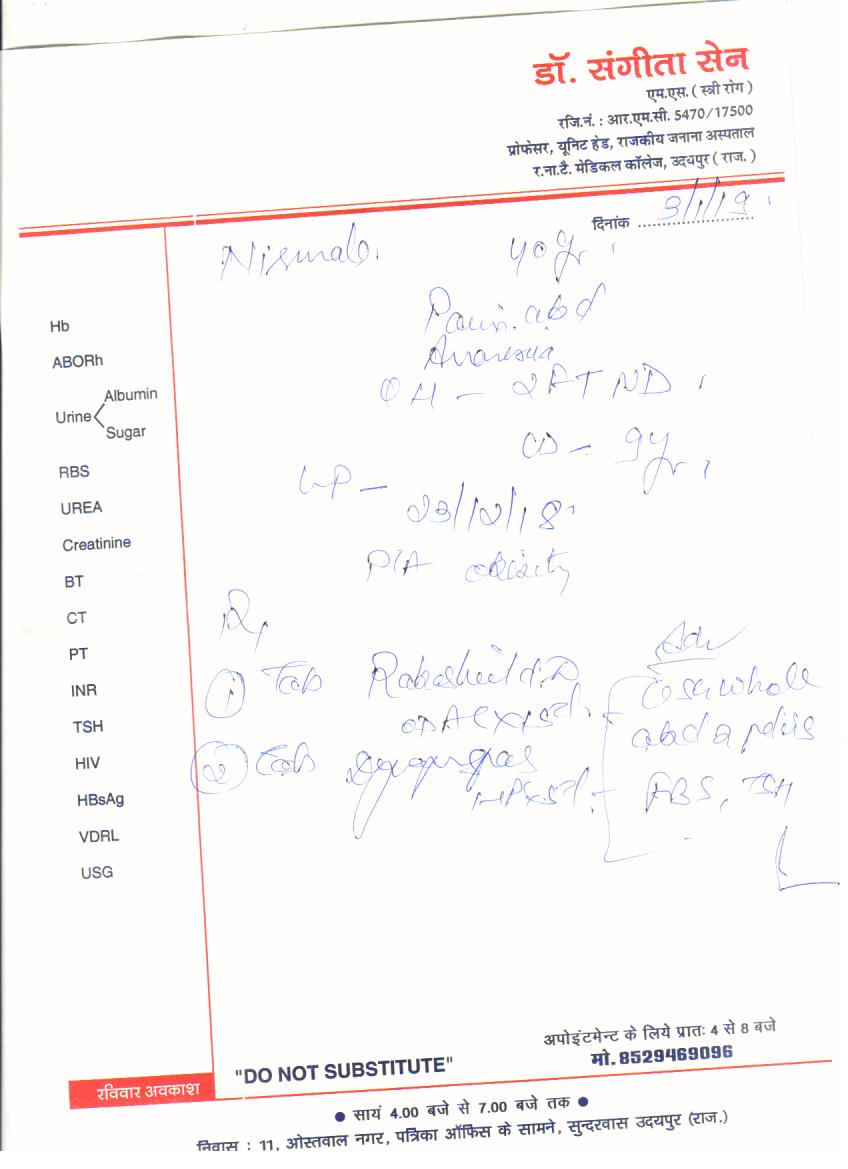 डॉ. संगीता सेन
एम.एस. ( स्त्री रोग )
रजि.नं. : आर.एम.सी. 5470/17500
प्रोफेसर, यूनिट हेड, राजकीय जनाना अस्पताल
र.ना.टै. मेडिकल कॉलेज, उदयपुर ( राज. )
दिनांक 3/1/19
40 yr
Hb
Pain abd
ABORh
Albumin
OH - 2FTND
Urine
Sugar
CD - 9yr
RBS
LMP -
UREA
23/12/18
Creatinine
P/A obesity
BT
CT
Rx
PT
Adv
INR
① Tab
whole
TSH
abd
HIV
② Tab
HBsAg
FBS, TSH
VDRL
USG
अपोइंटमेन्ट के लिये प्रातः 4 से 8 बजे
मो. 8529469096
"DO NOT SUBSTITUTE"
रविवार अवकाश
● सायं 4.00 बजे से 7.00 बजे तक ●
निवास : 11, ओस्तवाल नगर, पत्रिका ऑफिस के सामने, सुन्दरवास उदयपुर (राज.)